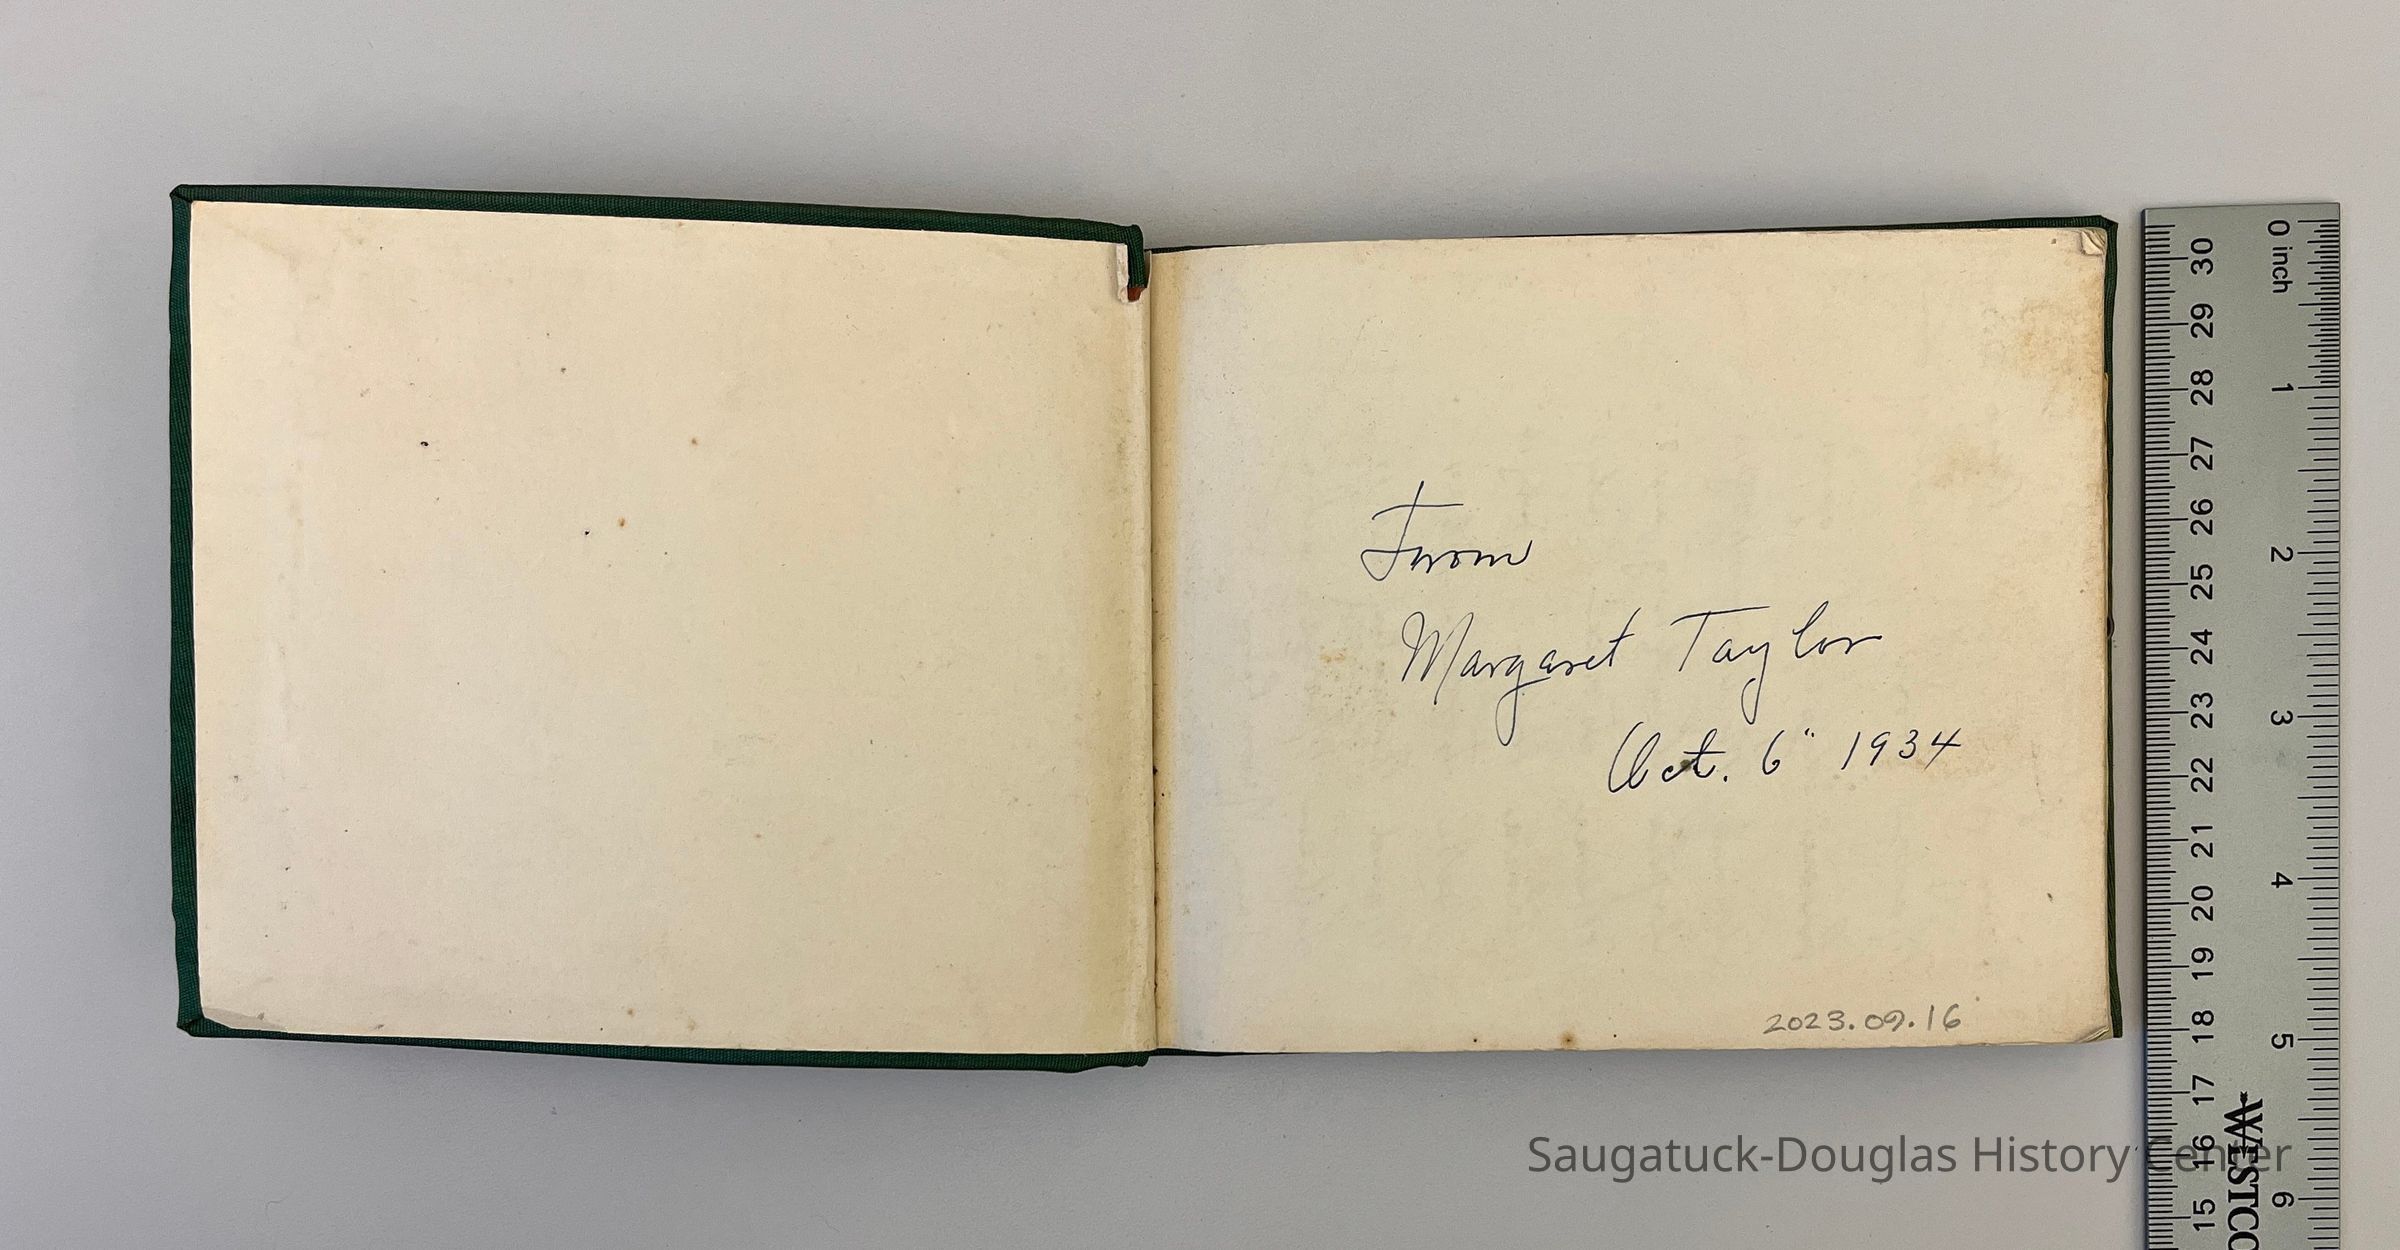 From
Margaret Taylor
Oct. 6" 1934
2023.09.16
Saugatuck-Douglas History Center
0 inch
1
2
3
4
5
6
30
29
28
27
26
25
24
23
22
21
20
19
18
17
16
15
WESTCO